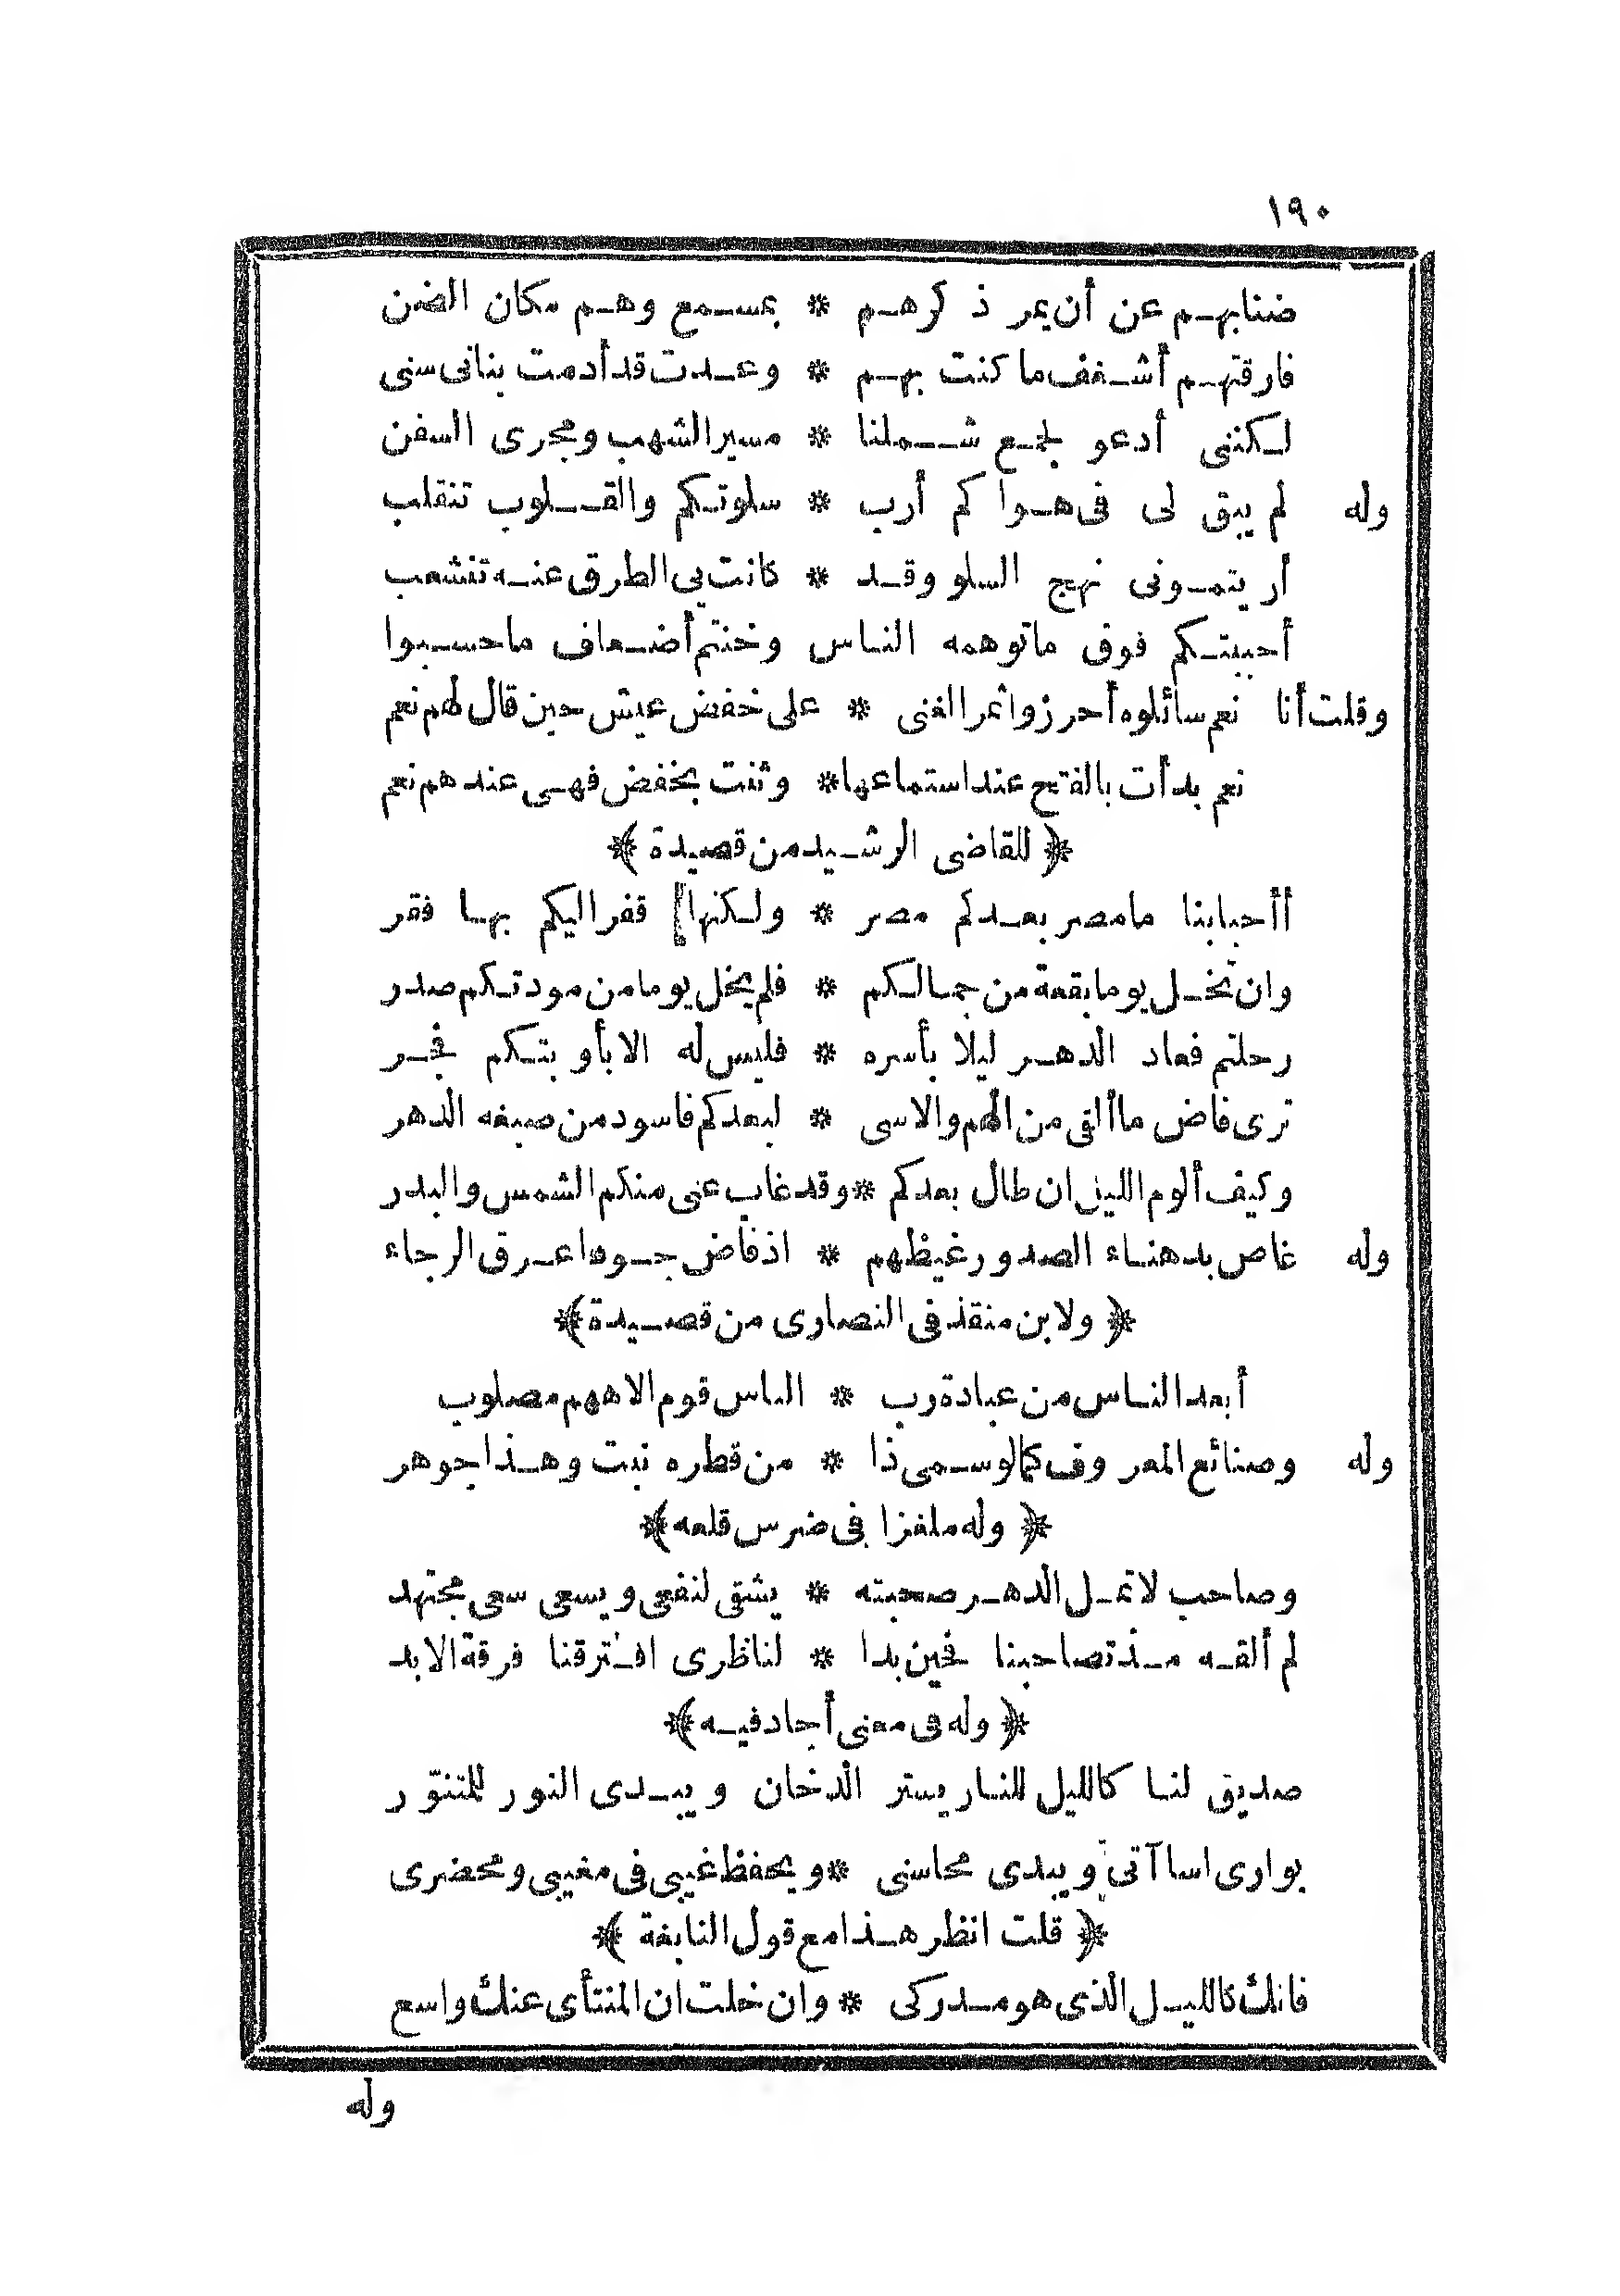 ١٩٠
ضنا بهم عن أن يمر ذكرهم * بمسمع وهم مكان الضن
فارقتهم أشغف ما كنت بهم * وعدت قد أدمت بنانى سنى
لكننى أدعو لجمع شملنا * مسير الشهب ومجرى السفن
وله لم يبق لى فى هواكم أرب * سلوتكم والقلوب تنقلب
أريتمونى نهج السلو وقد * كانت بى الطرق عنه تنشعب
أحببتكم فوق ما توهمه الناس وخنتم أضعاف ما حسبوا
وقلت أنا نعم سائلوه أحرزوا ثمر الغنى * على خفض عيش حين قال لهم نعم
نعم بدأت بالفتح عند استماعها * وثنت بخفض فهى عندهم نعم
﴿ للقاضى الرشيد من قصيدة ﴾
أأحبابنا ما مصر بعدكم مصر * ولكنها قفر اليكم بها فقر
وان تخل يوما بقعة من جمالكم * فلم يخل يوما من مودتكم صدر
رحلتم فعاد الدهر ليلا بأسره * فليس له الا بأوبتكم فجر
ترى فاض ما ألقى من الهم والاسى * لبعدكم فاسود من صبغه الدهر
وكيف ألوم الليل ان طال بعدكم * وقد غاب عنى منكم الشمس والبدر
وله غاص بدهناء الصدور غيظهم * اذ فاض جوها عرق الرجاء
﴿ ولابن منقذ فى النصارى من قصيدة ﴾
أبعد الناس من عبادة رب * الناس قوم الاههم مصلوب
وله وصنائع المعروف كالوسمى ذا * من قطره نبت وهذا جوهر
﴿ وله ملغزا فى ضرس قلعه ﴾
وصاحب لا تمل الدهر صحبته * يشقى لنفعى ويسعى سعى مجتهد
لم ألقه مذ تصاحبنا فحين بدا * لناظرى افترقنا فرقة الابد
﴿ وله فى معنى أجاد فيه ﴾
صديق لنا كالليل للنار يستر الدخان ويبدى النور للمتنوّر
يوارى اساآتى ويبدى محاسنى * ويحفظ غيبى فى مغيبى ومحضرى
﴿ قلت انظر هذا مع قول النابغة ﴾
فانك كالليل الذى هو مدركى * وان خلت ان المنتأى عنك واسع
وله